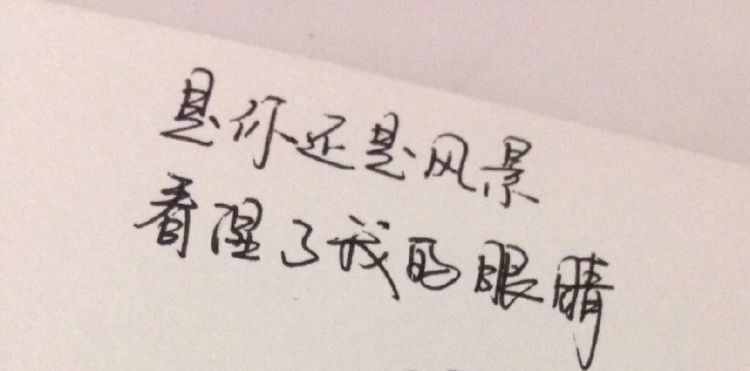 是你还是风景
看醒了我的眼睛